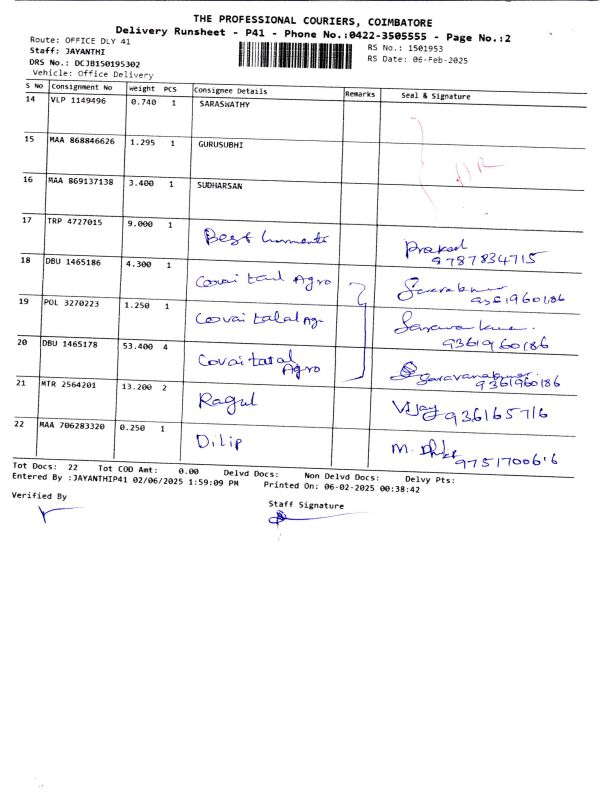 THE PROFESSIONAL COURIERS, COIMBATORE
Delivery Runsheet - P41 - Phone No.:0422-3505555 - Page No.:2
Route: OFFICE DLY 41
RS No.: 1501953
Staff: JAYANTHI
RS Date: 06-Feb-2025
DRS No.: DCJB150195302
Vehicle: Office Delivery
S No Consignment No Weight PCS Consignee Details Remarks Seal & Signature
14 VLP 1149496 0.740 1 SARASWATHY
15 MAA 868846626 1.295 1 GURUSUBHI
16 MAA 869137138 3.400 1 SUDHARSAN
17 TRP 4727015 9.000 1 Best Prakash
9787834715
18 DBU 1465186 4.300 1 Covai Agro
19 POL 3270223 1.250 1 Covai Agr
9361960186
20 DBU 1465178 53.400 4 Covai Agro Saravanakumar
9361960186
21 MTR 2564201 13.200 2 Ragul Vijay 936165716
22 MAA 706283320 0.250 1 Dilip M.
Tot Docs: 22 Tot COD Amt: 0.00 Delvd Docs: Non Delvd Docs: Delvy Pts:
Entered By :JAYANTHIP41 02/06/2025 1:59:09 PM Printed On: 06-02-2025 00:38:42
Verified By
Staff Signature